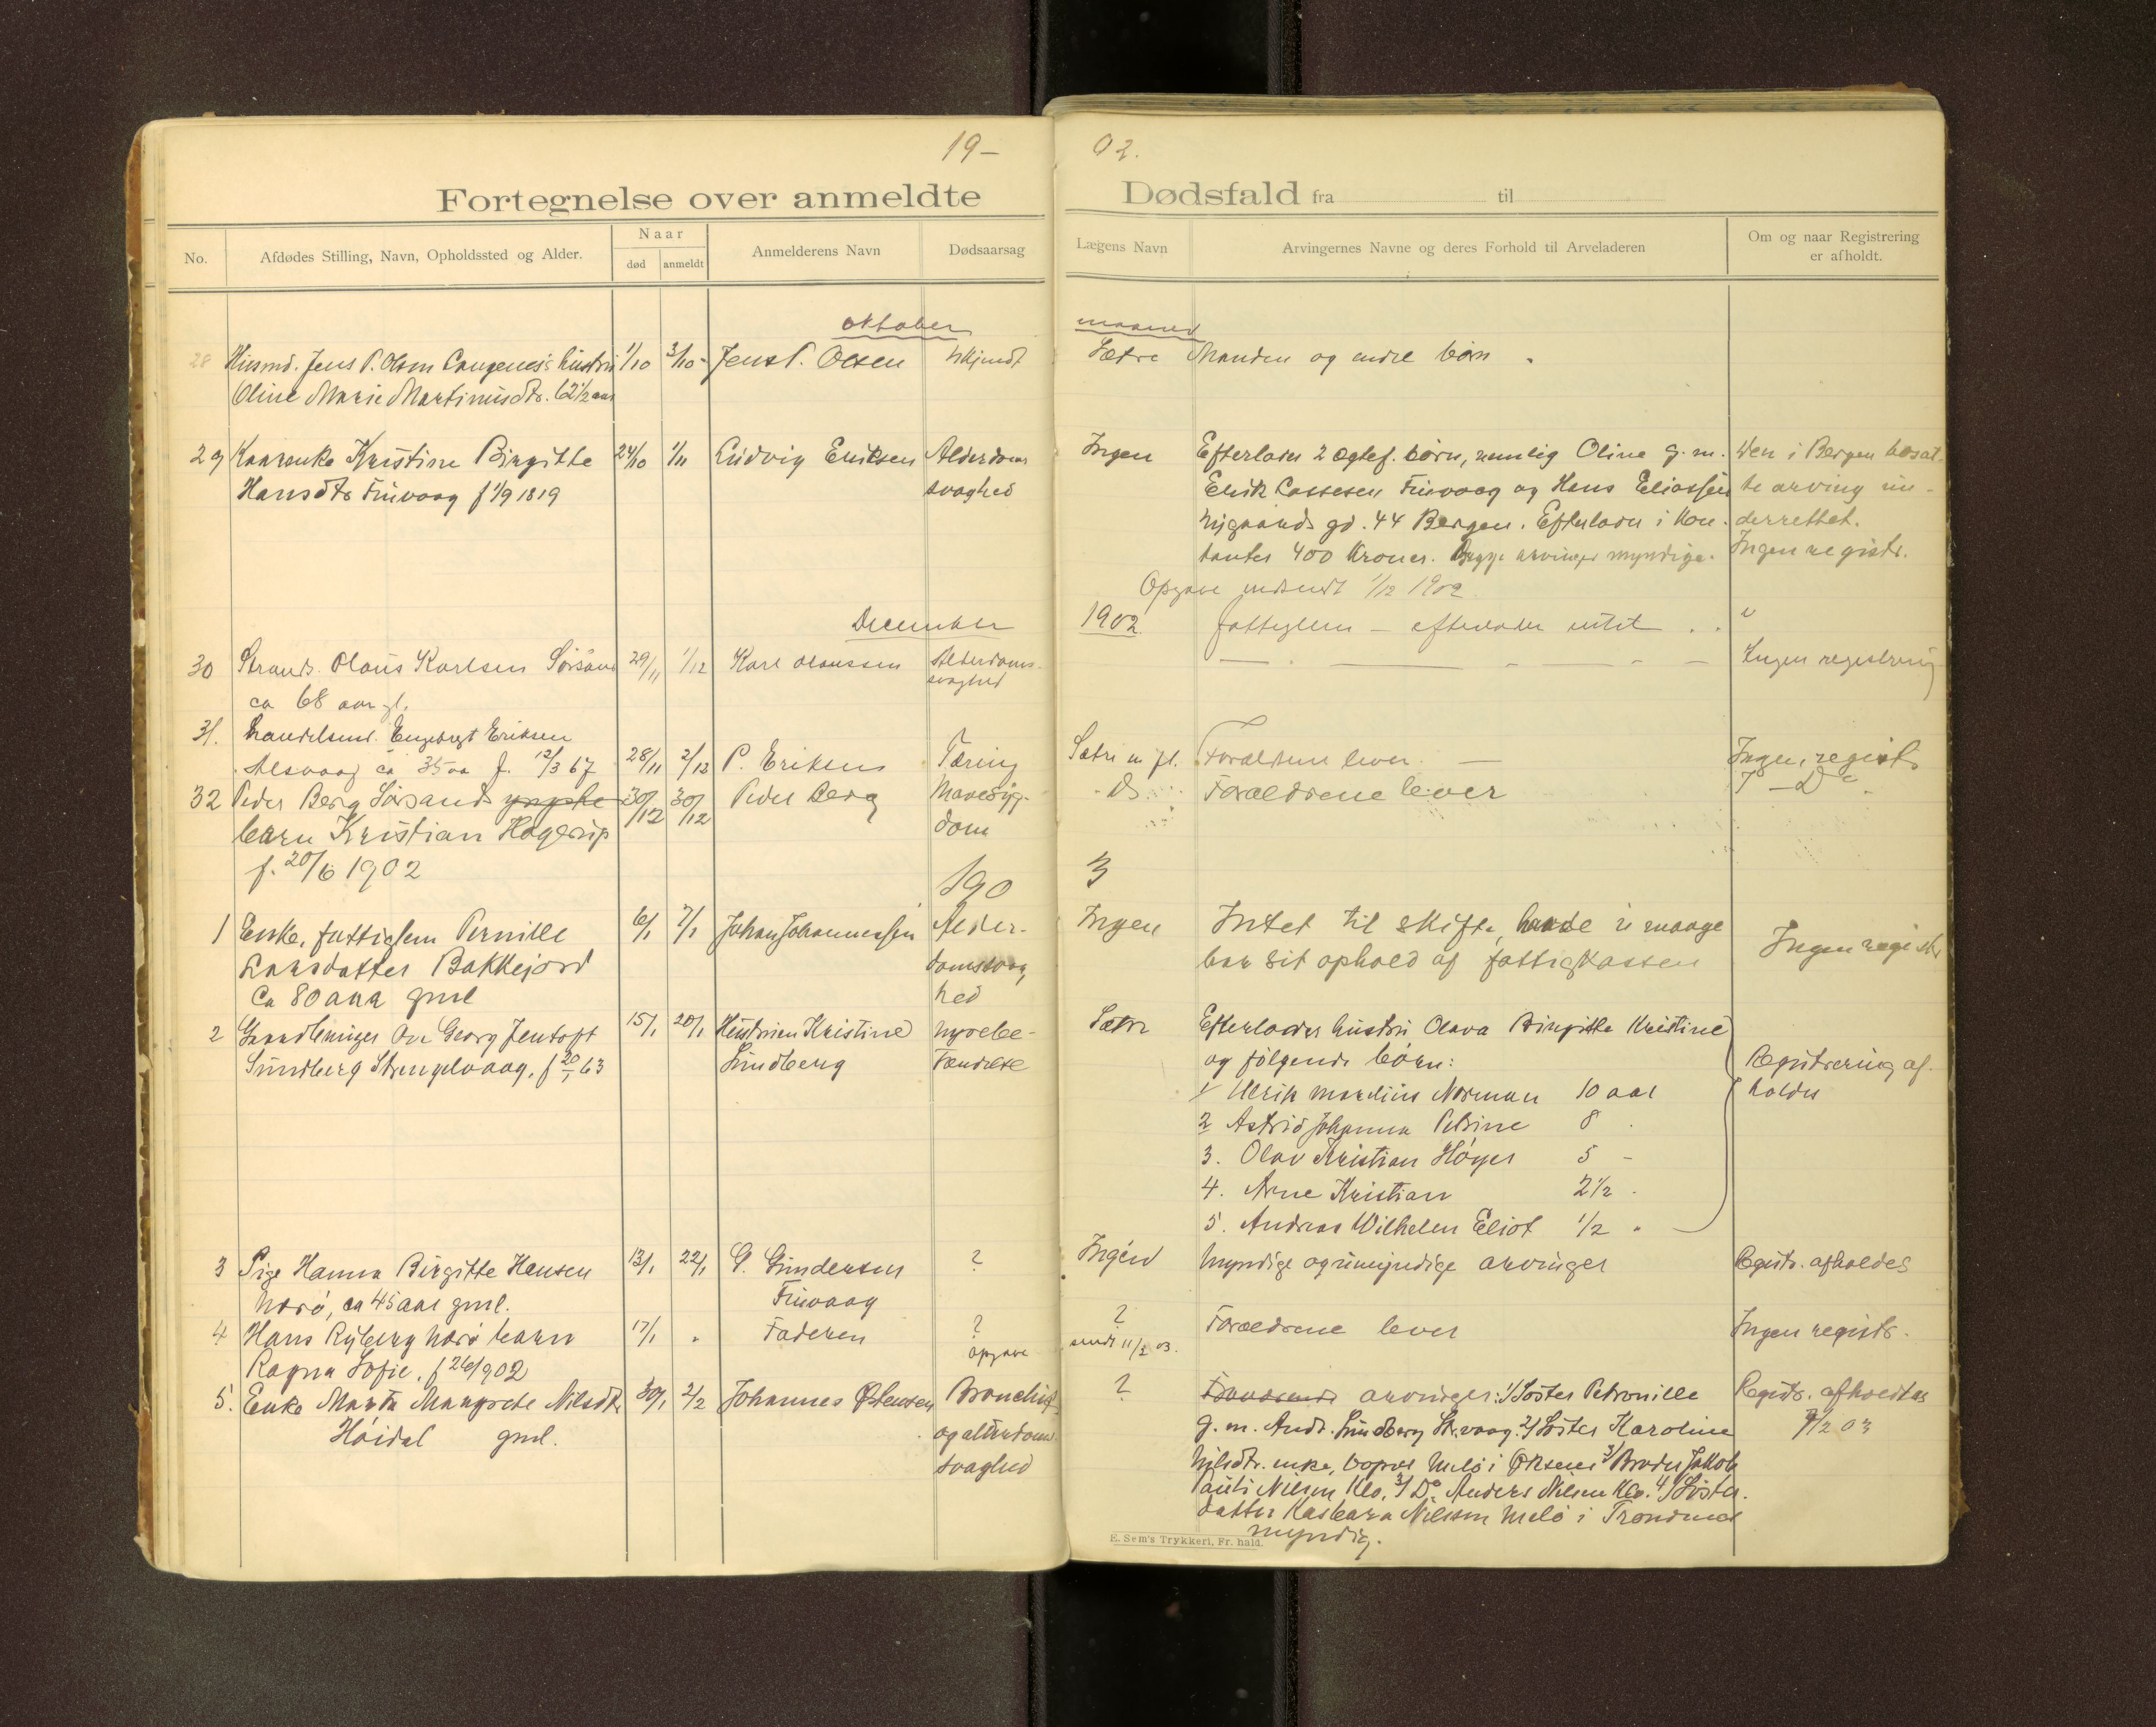 19-
02.
Fortegnelse over anmeldte
Dødsfald fra til
No.
Afdødes Stilling, Navn, Opholdssted og Alder.
Naar
død
anmeldt
Anmelderens Navn
Dødsaarsag
Lægens Navn
Arvingernes Navne og deres Forhold til Arveladeren
Om og naar Registrering
er afholdt.
oktober
maaned
28 Husmd. Jens P. Olsen Langenes's hustru 1/10 3/10 Jens P. Olsen Ukjendt
Oline Marie Martinusdtr. 62 1/2 aar
Sætre Manden og endel børn
29 Kaarenke Kristine Birgitte 24/10 1/11 Ludvig Eriksen Alderdoms
Hansdtr Finvaag f 1/9 1819 svaghed
Ingen Efterlader 2 ægtef. børn, nemlig Oline g. m. Den i Bergen bosat-
Erik Lassesen Finvaag og Hans Eliassen te arving un-
Nygaards gd. 44 Bergen. Efterlader i Kon- derrettet.
tanter 400 Kroner. Begge arvinger myndige. Ingen registr.
Opgave indsendt 1/12 1902.
December
1902 fattiglem - efterlader intet
30 Strands. Olaus Karlsen Sørsand 29/11 1/12 Karl Olaussen Alderdoms-
svaghed
ca 68 aar gl.
Ingen registrering
31. Handelsmd. Engebregt Eriksen
Alsvaag ca 35 aa f. 12/3 67 28/11 2/12 P. Eriksen Tæring
Sætre m. fl. Forældrene lever. Ingen registr
32 Peder Berg Sørsands yngste 30/12 30/12 Peder Berg Mavesyg-
barn Kristian Hagerup dom
f. 20/6 1902
Do Forældrene lever Do
190
3
1 Enke, fattiglem Pernille 6/1 7/1 Johan Johannessen Alder-
Larsdatter Bakkejord domssvag
Ca 80 aar gml hed
Ingen Intet til skifte, havde i mange
aar sit ophold af fattigkassen Ingen registr
2 Gaardbruger Ove Georg Jentoft 15/1 20/1 Hustruen Kristine Nyrebe-
Sundberg Strengelvaag, f 20/1 63 Lundberg tændelse
Sætre Efterlader hustru Olava Birgitte Kristine
og følgende børn: Registrering af-
1 Ulrik Mardius Norman 10 aar holdes
2 Astrid Johanna Petrine 8
3. Olav Kristian Høyer 5 -
4. Arne Kristian 2 1/2
5. Andreas Wilhelm Eliot 1/2 "
3 Pige Hanna Birgitte Hansen 13/1 22/1 G. Gundersen ?
Norø, ca 45 aar gml. Finvaag
Ingen Myndige og umyndige arvinger Registr. afholdes
4 Hans Ryberg Norø barn 17/1 " Faderen ?
Ragna Sofie, f 26/ 902 opgave
? Forældrene lever Ingen registr.
sendt 11/2 03.
5. Enke Marta Margrete Nilsdtr 30/1 2/2 Johannes Østensen Bronchit
Høidal gml. og alderdoms
svaghed
? Forældrene arvinger: 1/ Søster Petronille Registr. afholdtes
g. m. Andr. Lundberg Str.vaag. 2/ Søster Karoline 7/2 03
Nilsdtr. enke, bopæl Melø i Øksnes 3/ Broder Jakob
Pauli Nilsen Klo. 3/ Do Anders Nilsen Klo. 4/ Søster-
datter Kasbara Nilssen Melø i Trondenes
myndig.
E. Sem's Trykkeri, Fr. hald.